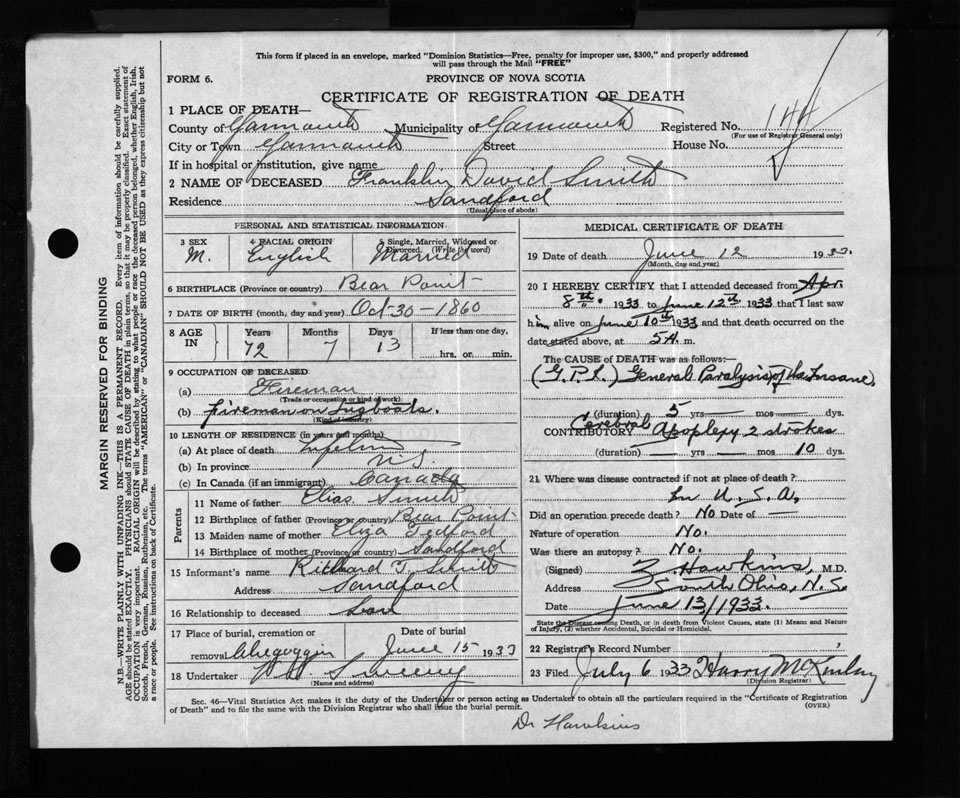 This form if placed in an envelope, marked "Dominion Statistics—Free, penalty for improper use, $300," and properly addressed
will pass through the Mail "FREE"
FORM 6.
PROVINCE OF NOVA SCOTIA
CERTIFICATE OF REGISTRATION OF DEATH
1 PLACE OF DEATH—
County of Yarmouth Municipality of Yarmouth Registered No. 144
(For use of Registrar General only)
City or Town Yarmouth Street House No.
If in hospital or institution, give name
2 NAME OF DECEASED Franklin David Smith
Residence Sandford
(Usual place of abode)
PERSONAL AND STATISTICAL INFORMATION
3 SEX 4 RACIAL ORIGIN 5 Single, Married, Widowed or Divorced. (Write the word)
M. English Married
6 BIRTHPLACE (Province or country) Bear Point
7 DATE OF BIRTH (month, day and year) Oct-30-1860
8 AGE IN Years Months Days If less than one day,
72 7 13 hrs. or min.
9 OCCUPATION OF DECEASED
(a) Fireman
(Trade or occupation or kind of work)
(b) fireman on tugboats.
(Kind of industry)
10 LENGTH OF RESIDENCE (in years and months)
(a) At place of death Lifetime
(b) In province N.S.
(c) In Canada (if an immigrant) Canada
Parents
11 Name of father Elias Smith
12 Birthplace of father (Province or country) Bear Point
13 Maiden name of mother Eliza Tedford
14 Birthplace of mother (Province or country) Sandford
15 Informant's name Richard T. Smith
Address Sandford
16 Relationship to deceased Son
17 Place of burial, cremation or removal Chegoggin
Date of burial June 15 1933
18 Undertaker Sweeny
(Name and address)
MEDICAL CERTIFICATE OF DEATH
19 Date of death June 12 1933.
(Month, day and year)
20 I HEREBY CERTIFY that I attended deceased from Apr.
8th. 1933 to June 12th 1933 that I last saw
him alive on June 10th 1933 and that death occurred on the
date stated above, at 5 A. m.
The CAUSE of DEATH was as follows:—
(G.P.I.) General Paralysis of the Insane.
(duration) 5 yrs — mos — dys.
CONTRIBUTORY Cerebral Apoplexy 2 strokes
(duration) — yrs — mos 10 dys.
21 Where was disease contracted if not at place of death?
In U.S.A.
Did an operation precede death? No Date of —
Nature of operation No.
Was there an autopsy? No.
(Signed) Z. Hawkins, M.D.
Address South Ohio, N.S.
Date June 13/1933.
State the Disease causing Death, or in death from Violent Causes, state (1) Means and Nature
of Injury, (2) whether Accidental, Suicidal or Homicidal.
22 Registrar's Record Number
23 Filed July 6 1933 Harry McKinlay
(Division Registrar)
Sec. 46—Vital Statistics Act makes it the duty of the Undertaker or person acting as Undertaker to obtain all the particulars required in the "Certificate of Registration
of Death" and to file the same with the Division Registrar who shall issue the burial permit.
(OVER)
Dr Hawkins
MARGIN RESERVED FOR BINDING
N.B.—WRITE PLAINLY WITH UNFADING INK—THIS IS A PERMANENT RECORD. Every item of information should be carefully supplied.
AGE should be stated EXACTLY. PHYSICIANS should STATE CAUSE OF DEATH in plain terms, so that it may be properly classified. Exact statement of
OCCUPATION is very important. RACIAL ORIGIN will be described by stating to what people or race the deceased person belonged, whether English, Irish,
Scotch, French, German, Russian, Ruthenian, etc. The terms "AMERICAN" or "CANADIAN" SHOULD NOT BE USED as they express citizenship but not
a race or people. See instructions on back of Certificate.